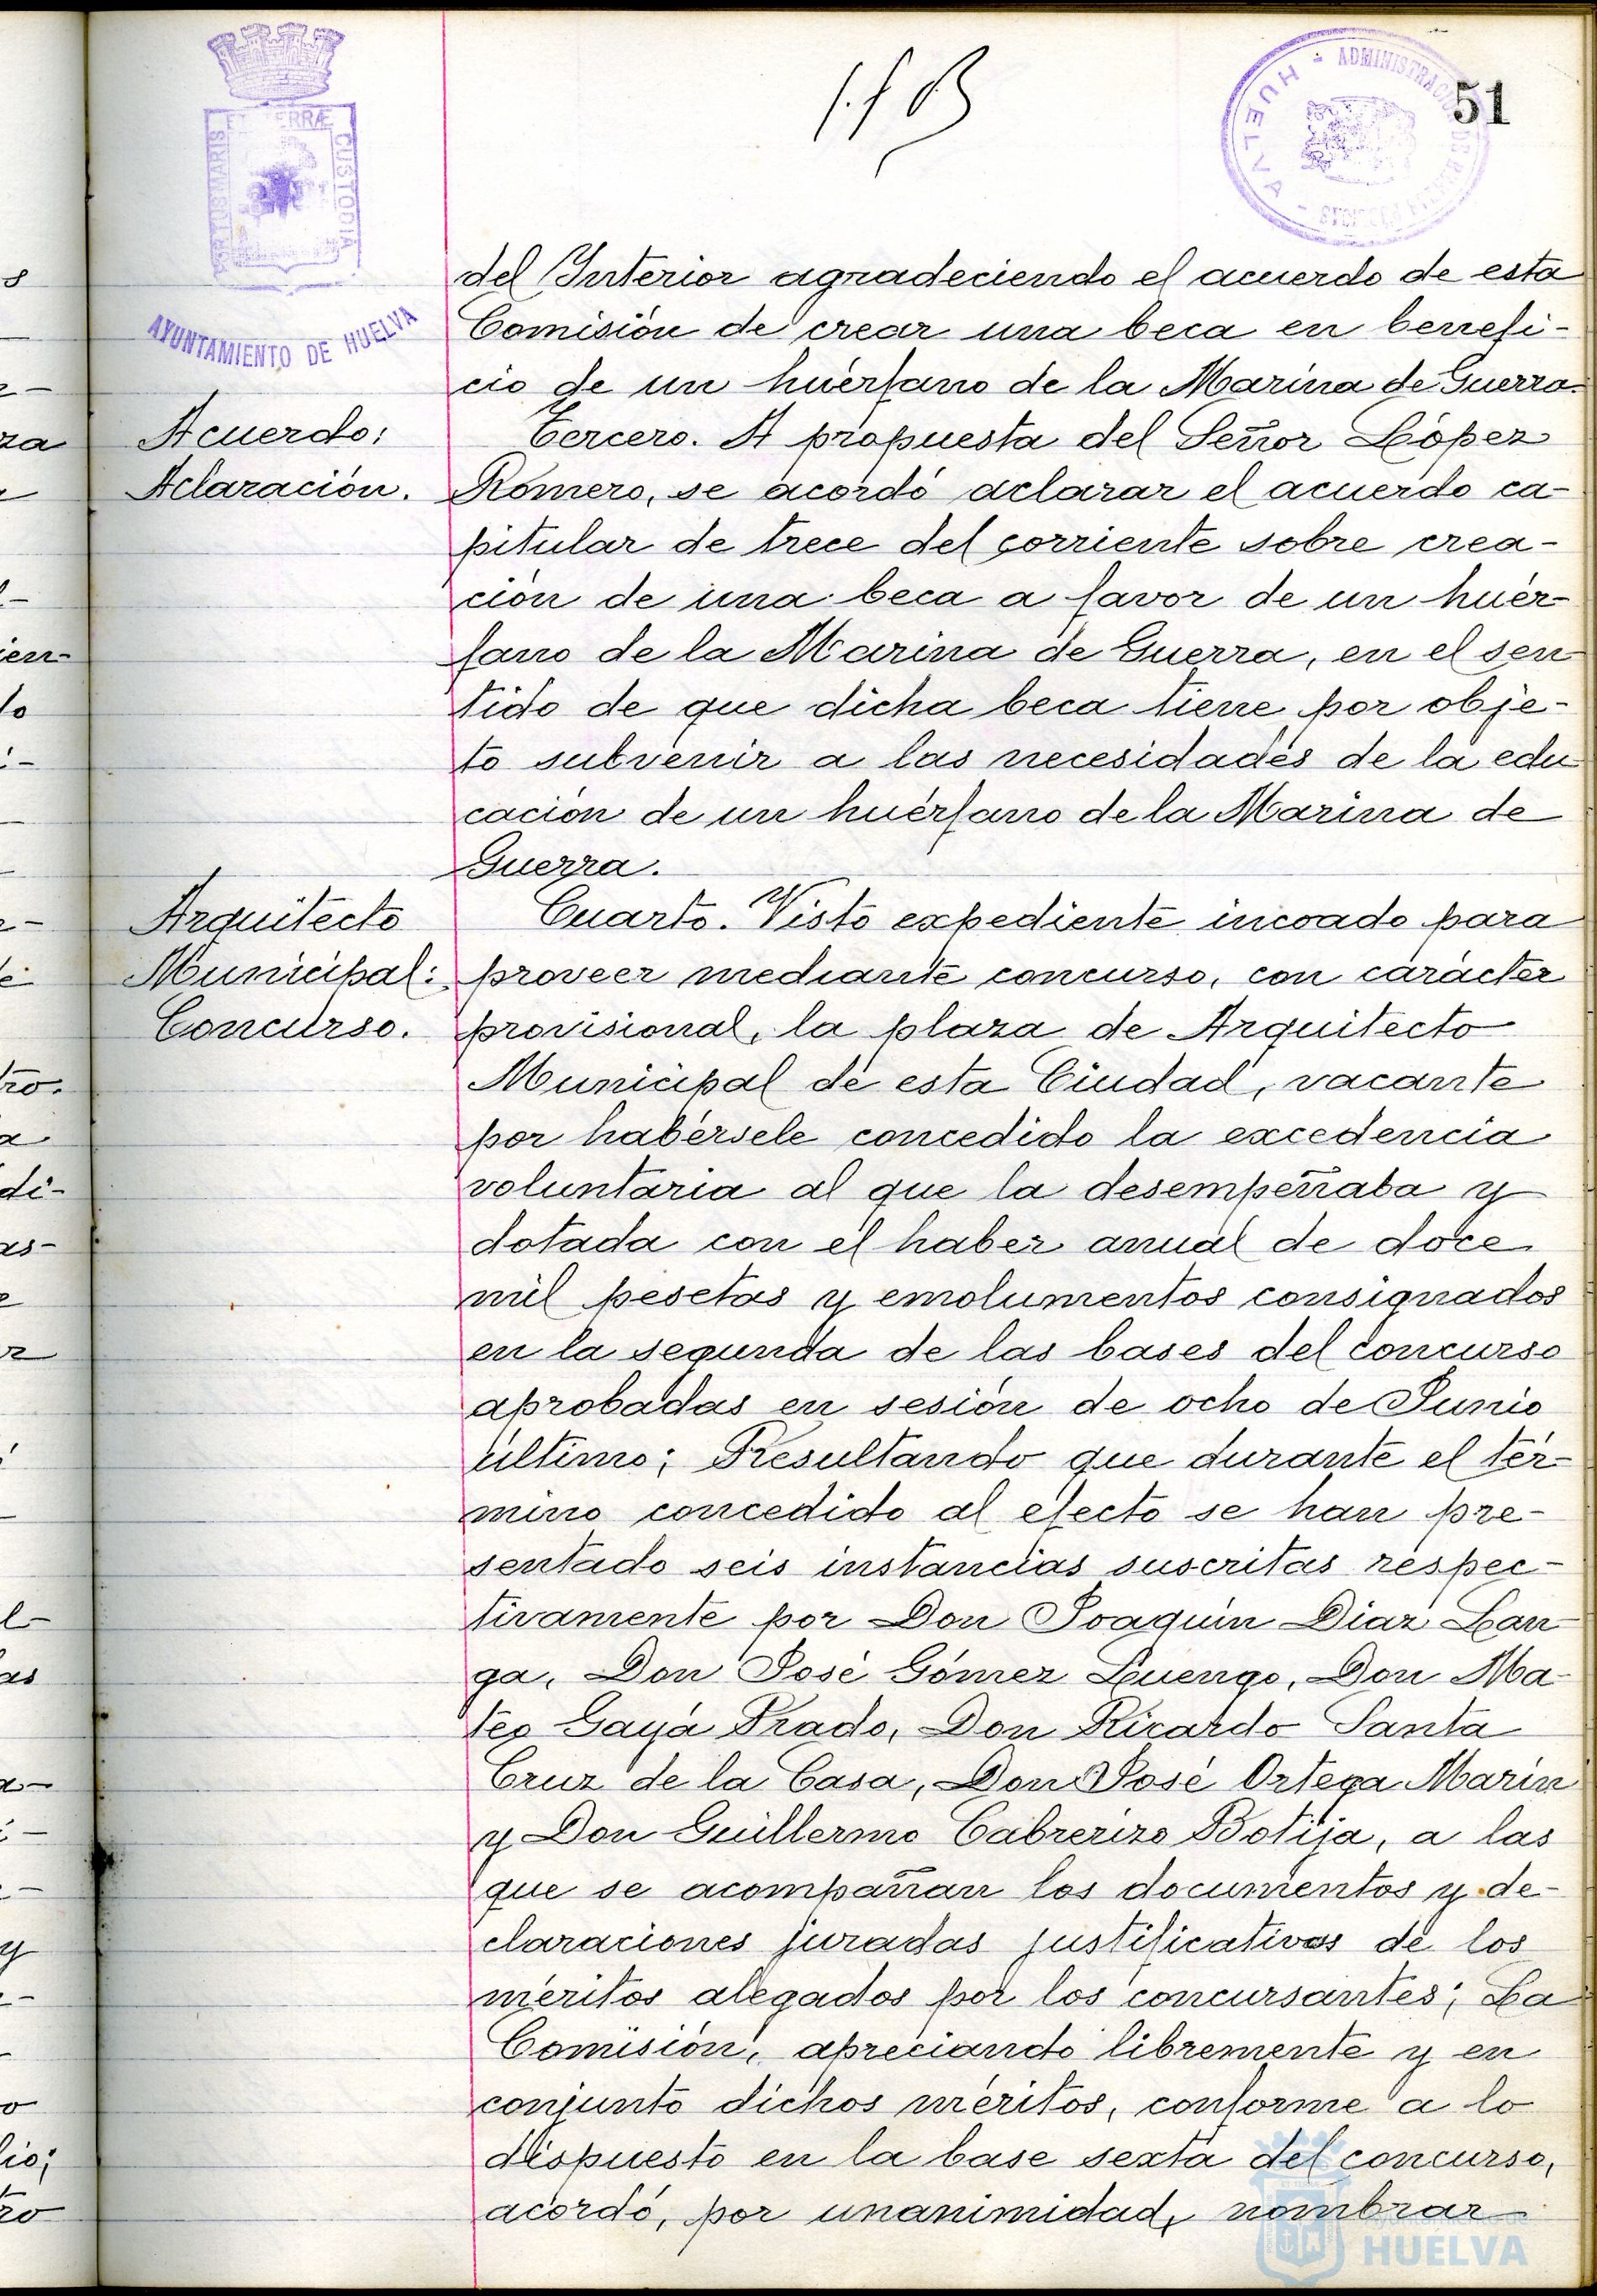 51
ADMINISTRACION DE RENTAS PUBLICAS - HUELVA -
PORTUS MARIS ET TERRÆ CUSTODIA
AYUNTAMIENTO DE HUELVA
del Interior agradeciendo el acuerdo de esta
Comisión de crear una beca en benefi-
cio de un huérfano de la Marina de Guerra.
Acuerdo:
Aclaración.
Tercero. A propuesta del Señor López
Romero, se acordó aclarar el acuerdo ca-
pitular de trece del corriente sobre crea-
ción de una beca a favor de un huér-
fano de la Marina de Guerra, en el sen
tido de que dicha beca tiene por obje-
to subvenir a las necesidades de la edu
cación de un huérfano de la Marina de
Guerra.
Arquitecto
Municipal:
Concurso.
Cuarto. Visto expediente incoado para
proveer mediante concurso, con carácter
provisional, la plaza de Arquitecto
Municipal de esta Ciudad, vacante
por habérsele concedido la excedencia
voluntaria al que la desempeñaba y
dotada con el haber anual de doce
mil pesetas y emolumentos consignados
en la segunda de las bases del concurso
aprobadas en sesión de ocho de Junio
último; Resultando que durante el tér-
mino concedido al efecto se han pre-
sentado seis instancias suscritas respec-
tivamente por Don Joaquín Díaz Lan-
ga, Don José Gómez Luengo, Don Ma-
teo Gayá Prado, Don Ricardo Santa
Cruz de la Casa, Don José Ortega Marín
y Don Guillermo Cabrerizo Botija, a las
que se acompañan los documentos y de-
claraciones juradas justificativos de los
méritos alegados por los concursantes; La
Comisión, apreciando libremente y en
conjunto dichos méritos, conforme a lo
dispuesto en la base sexta del concurso,
acordó, por unanimidad, nombrar
HUELVA